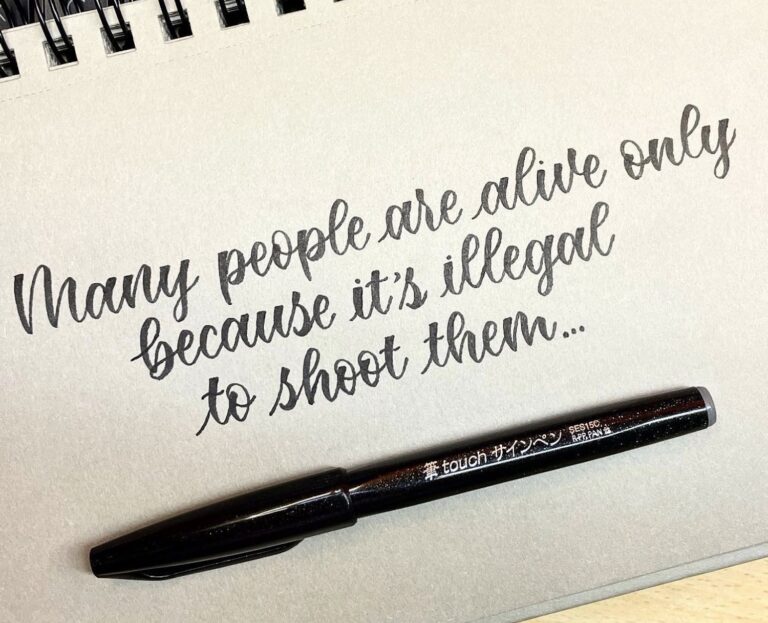 Many people are alive only
because it's illegal
to shoot them...
筆touch サインペン SES15C